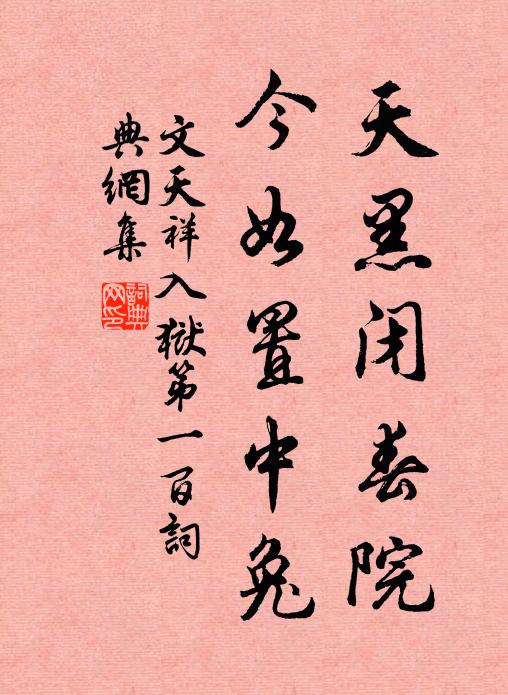 天黑闭春院
今如置中兔
文天祥入獄第一百詞
典網集
詞典網印